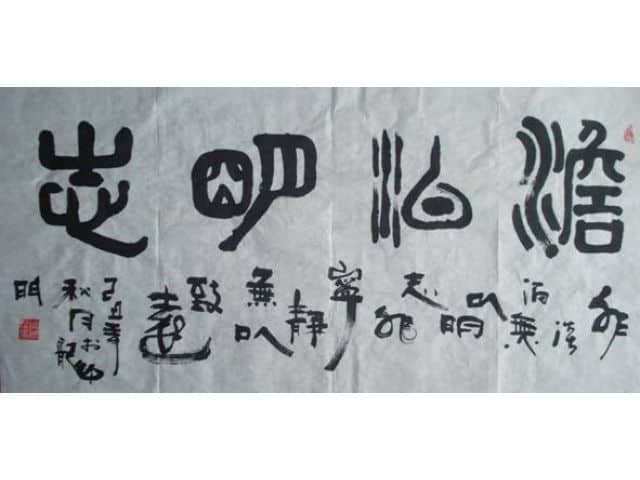 澹泊明志
非淡泊無以明志非寧靜無以致遠
己丑年秋月於龍門